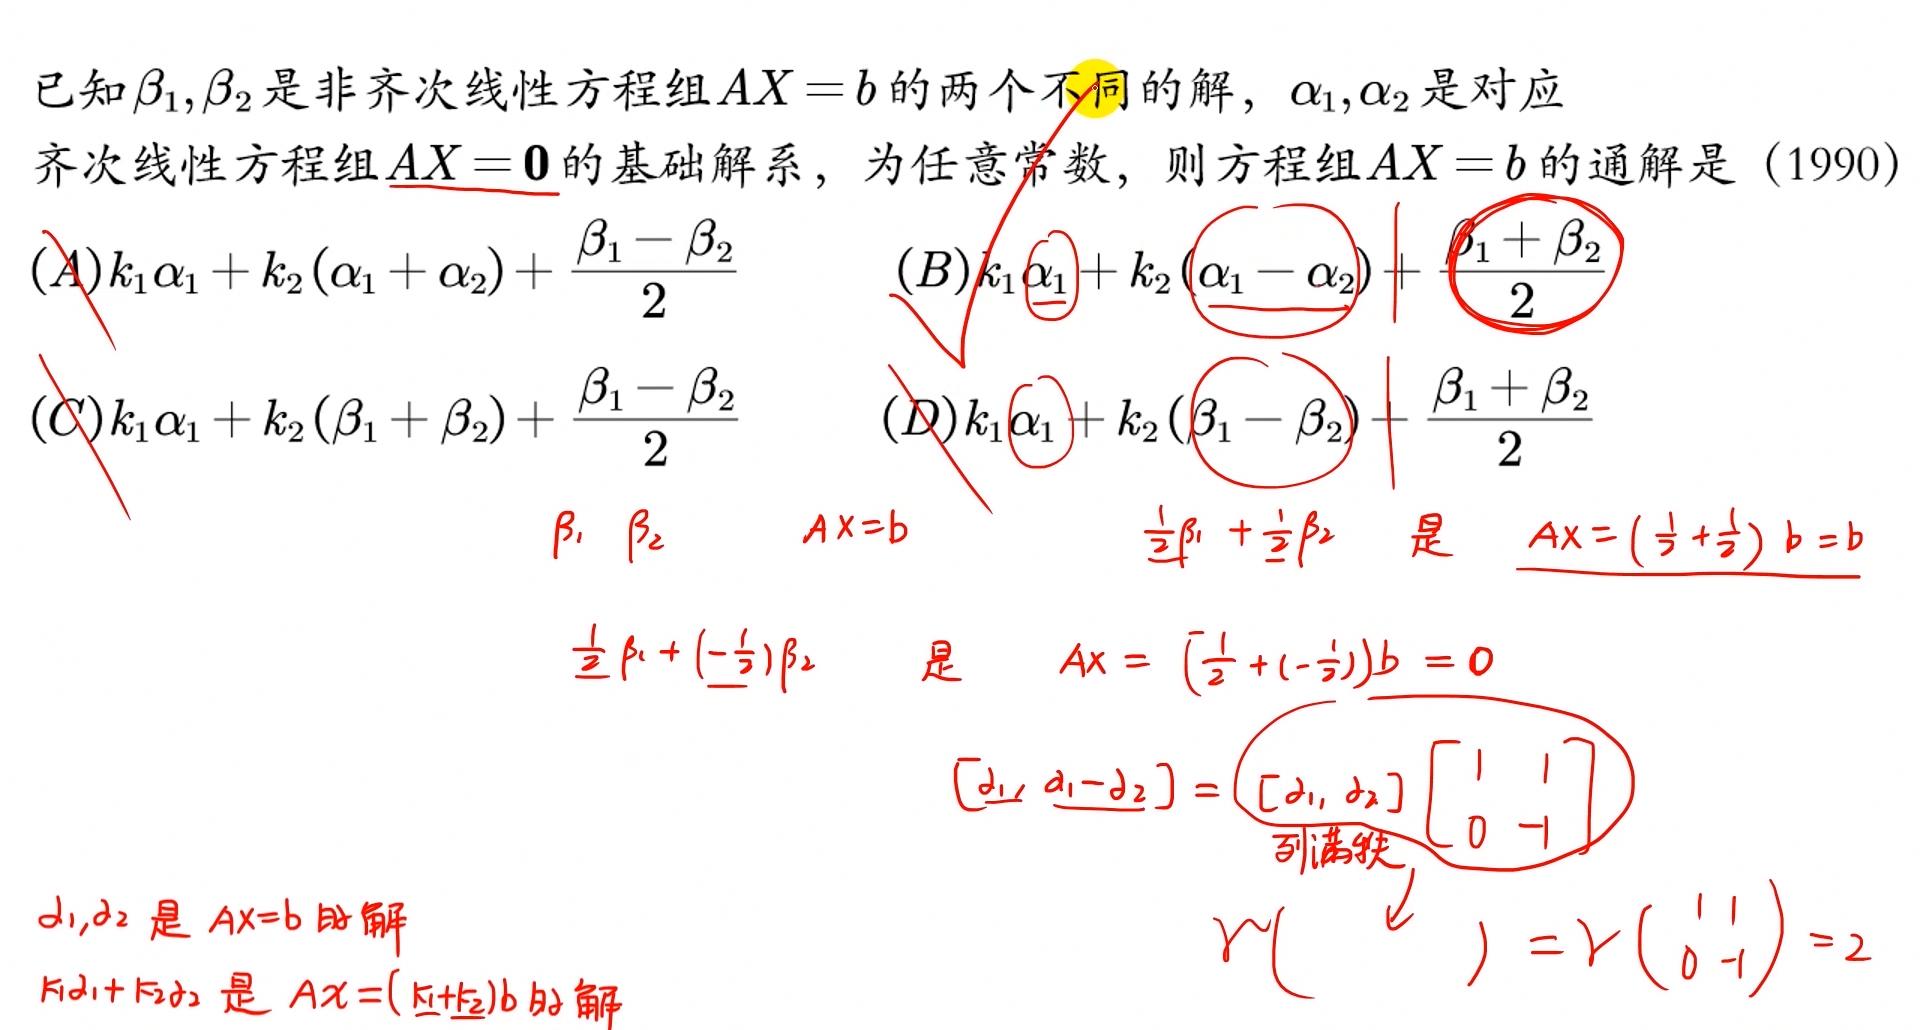 已知β₁,β₂是非齐次线性方程组AX=b的两个不同的解，α₁,α₂是对应
齐次线性方程组AX=0的基础解系，为任意常数，则方程组AX=b的通解是（1990）
(A)k₁α₁+k₂(α₁+α₂)+(β₁−β₂)/2 (B)k₁α₁+k₂(α₁−α₂)+(β₁+β₂)/2
(C)k₁α₁+k₂(β₁+β₂)+(β₁−β₂)/2 (D)k₁α₁+k₂(β₁−β₂)+(β₁+β₂)/2
β₁ β₂ AX=b ½β₁+½β₂ 是 AX=(½+½)b=b
½β₁+(−½)β₂ 是 AX=[½+(−½)]b=0
[α₁, α₁−α₂]=[α₁, α₂][1 1; 0 −1]
列满秩
α₁,α₂ 是 AX=b 的解
r( )=r(1 1; 0 −1)=2
k₁α₁+k₂α₂ 是 Ax=(k₁+k₂)b 的解